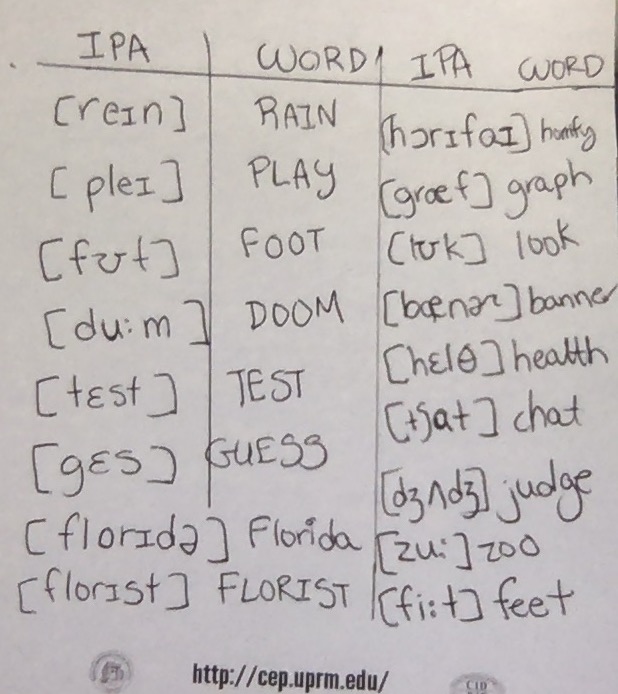 IPA WORD IPA WORD
[reɪn] RAIN [hɔrɪfaɪ] horrify
[pleɪ] PLAY [græf] graph
[fʊt] FOOT [lʊk] look
[du:m] DOOM [bænər] banner
[tɛst] TEST [hɛlθ] health
[gɛs] GUESS [tʃat] chat
[florɪdə] Florida [dʒʌdʒ] judge
[florɪst] FLORIST [zu:] zoo
[fi:t] feet
http://cep.uprm.edu/